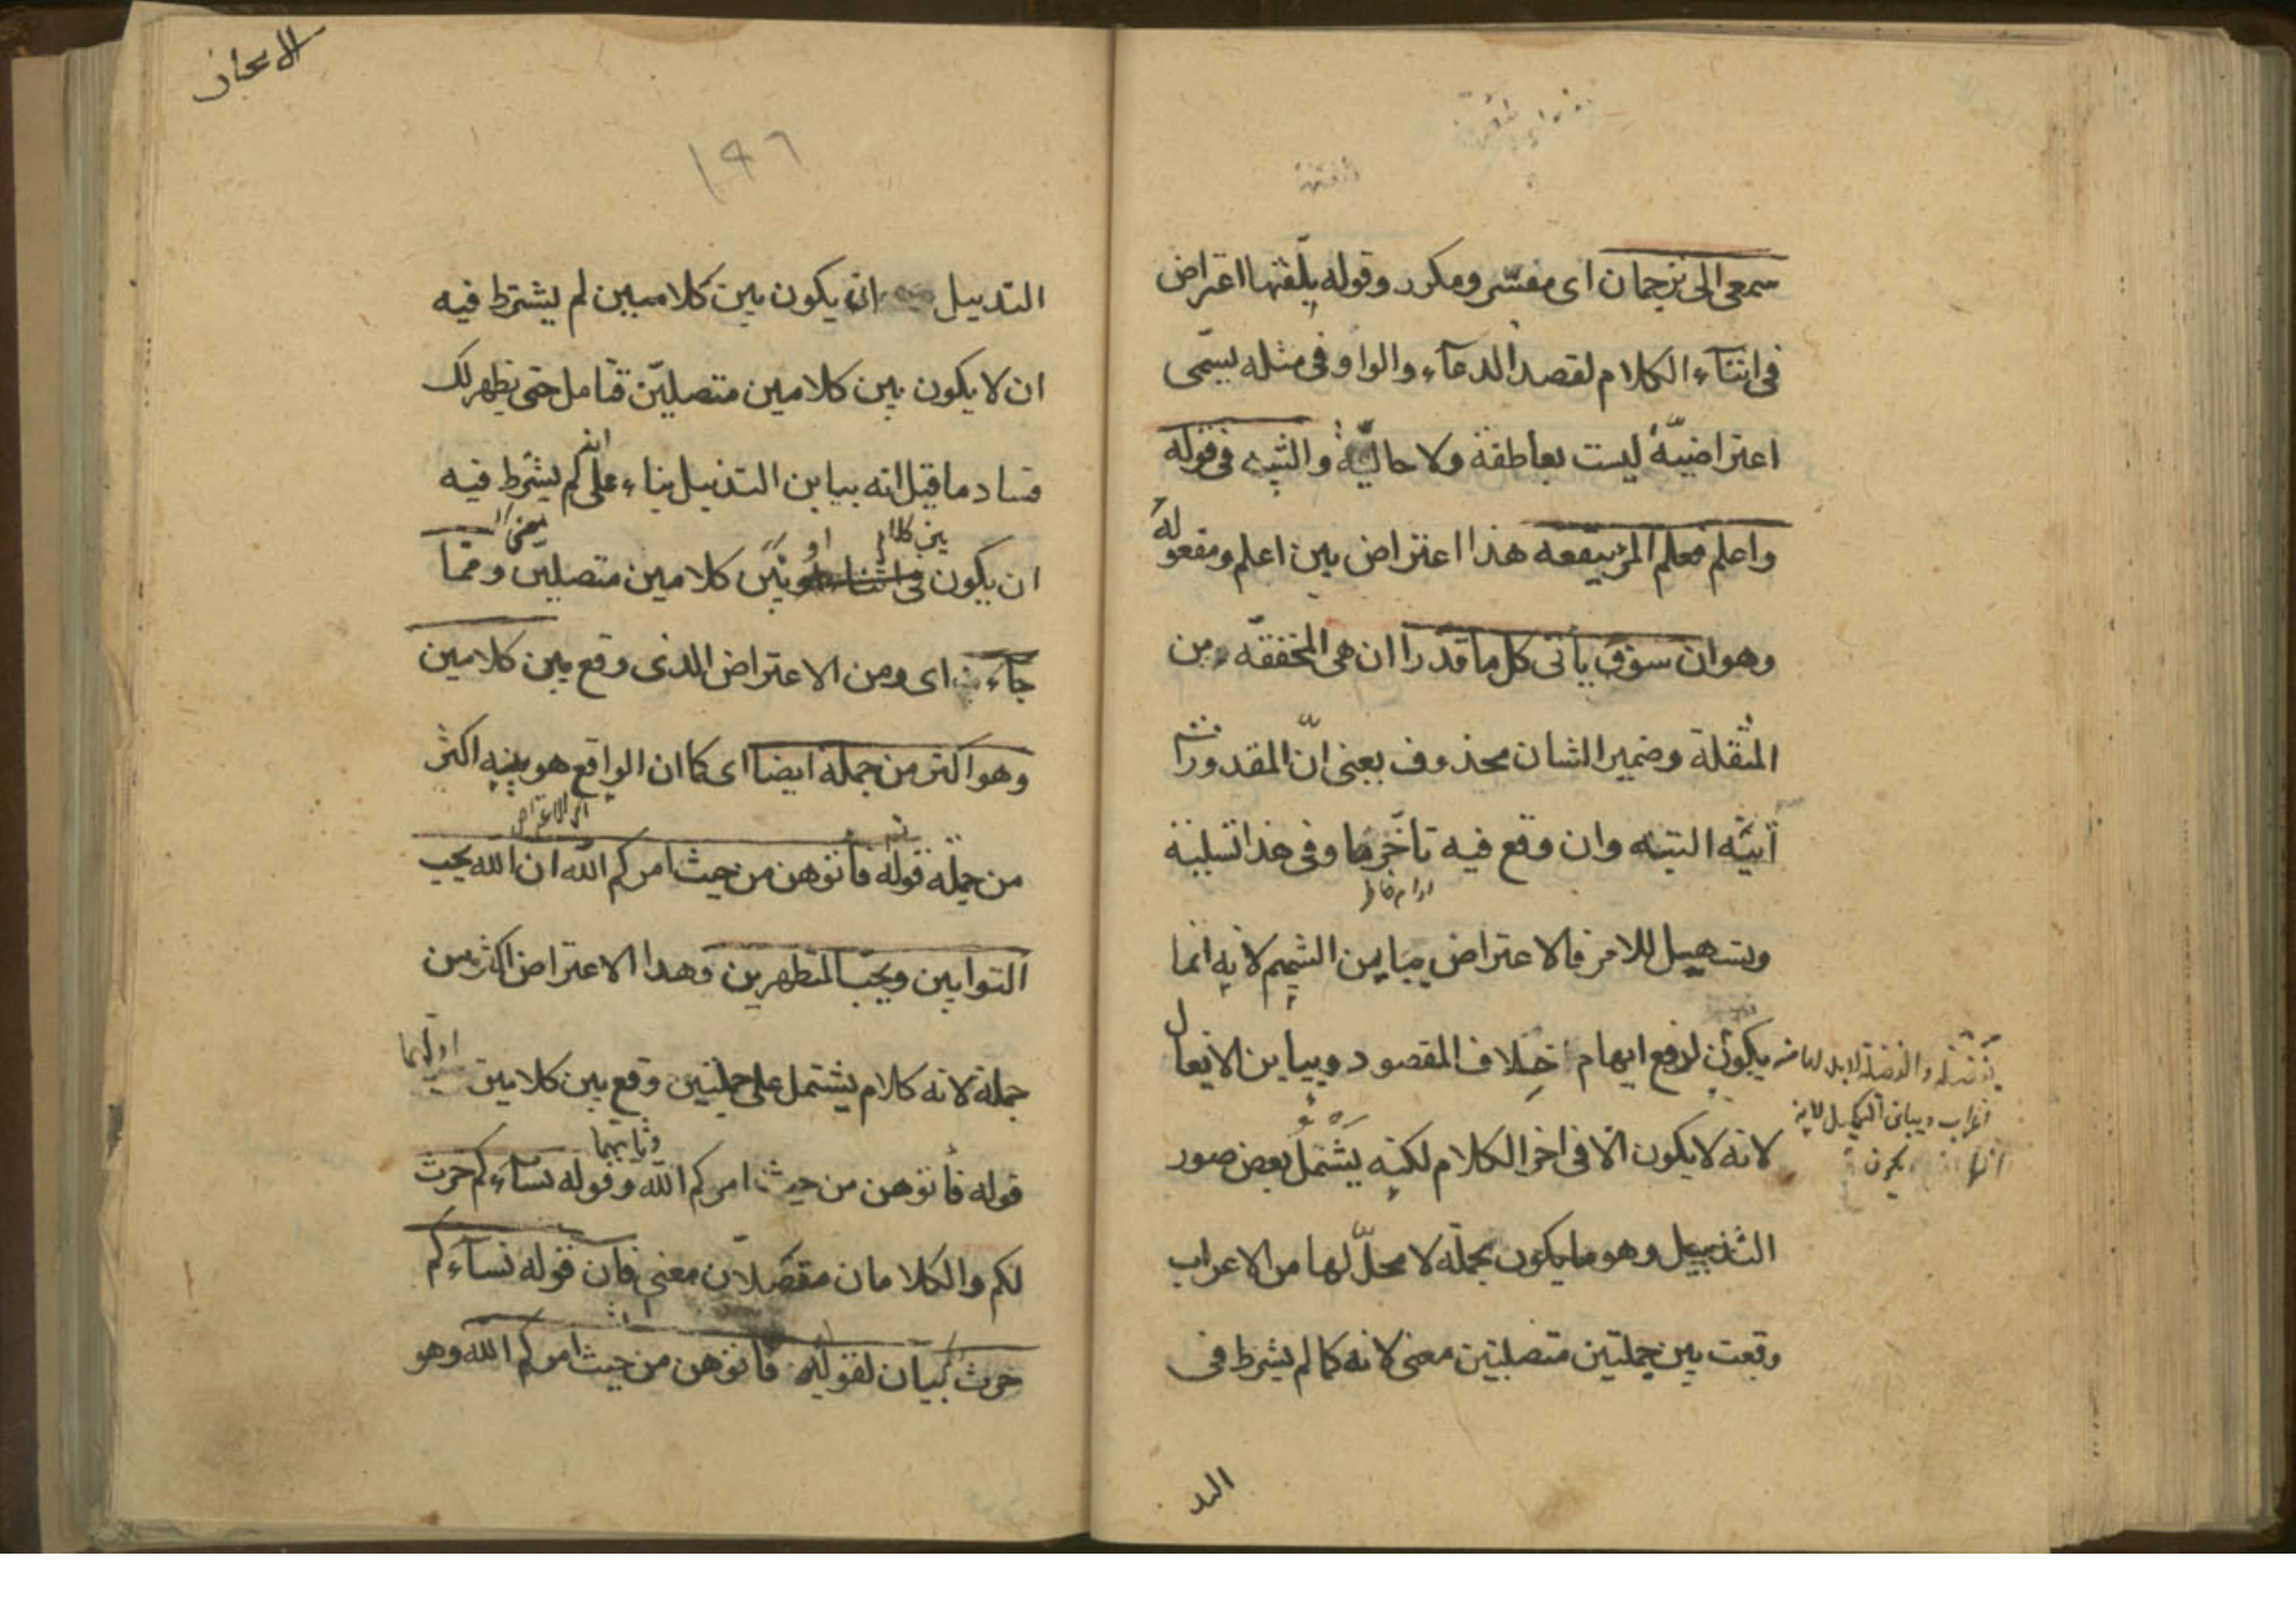 سمعى الى ترجمان اى مفسّر ومكرر وقوله بلّغتها اعتراض
فى اثناء الكلام لقصد الدعاء والواو فى مثله يسمّى
اعتراضيّة ليست بعاطفة ولا حاليّة والتنبيه فى قوله
واعلم فعلم المرء ينفعه هذا اعتراض بين اعلم ومفعوله
وهو ان سوف يأتى كل ما قدّرا ان هى المخففة من
المثقلة وضمير الشان محذوف يعنى انّ المقدورات
آتيّة البتّه وان وقع فيه تأخّر ما وفى هذا تسلية
وتسهيل للامر فالاعتراض يباين التتميم لانه انما
يكون بفضلة والفضلة لا بد لها من
اعراب ويباين التكميل لانه
انما يكون
يكون لدفع ايهام خلاف المقصود ويباين الايغال
لانه لا يكون الّا فى اخر الكلام لكنه يشتمل بعض صور
التذييل وهو ما يكون بجملة لا محلّ لها من الاعراب
وقعت بين جملتين متصلتين معنى لانه كما لم يشترط فى
التد
الايجاز
١٩٦
التدييل ان يكون بين كلامين لم يشترط فيه
ان لا يكون بين كلامين متصلين فتأمل حتى يظهر لك
فساد ما قيل انه يباين التذييل بناء على انه لم يشترط فيه
ان يكون بين كلام او بين كلامين متصلين معنى وممّا
جاء اى ومن الاعتراض الذى وقع بين كلامين
وهو اكثر من جملة ايضا اى كما ان الواقع هو بينه اكثر
اى الاعتراض
من جملة قوله فأتوهن من حيث امركم الله ان الله يحب
التوابين ويحبّ المتطهرين وهدا الاعتراض اكثر من
جملة لانه كلام يشتمل على جملتين وقع بين كلامين اولهما
قوله فأتوهن من حيث امركم الله وثانيهما وقوله نساءكم حرث
لكم والكلامان متصلان معنى فان قوله نساءكم
حرث بيان لقوله فأتوهن من حيث امركم الله وهو